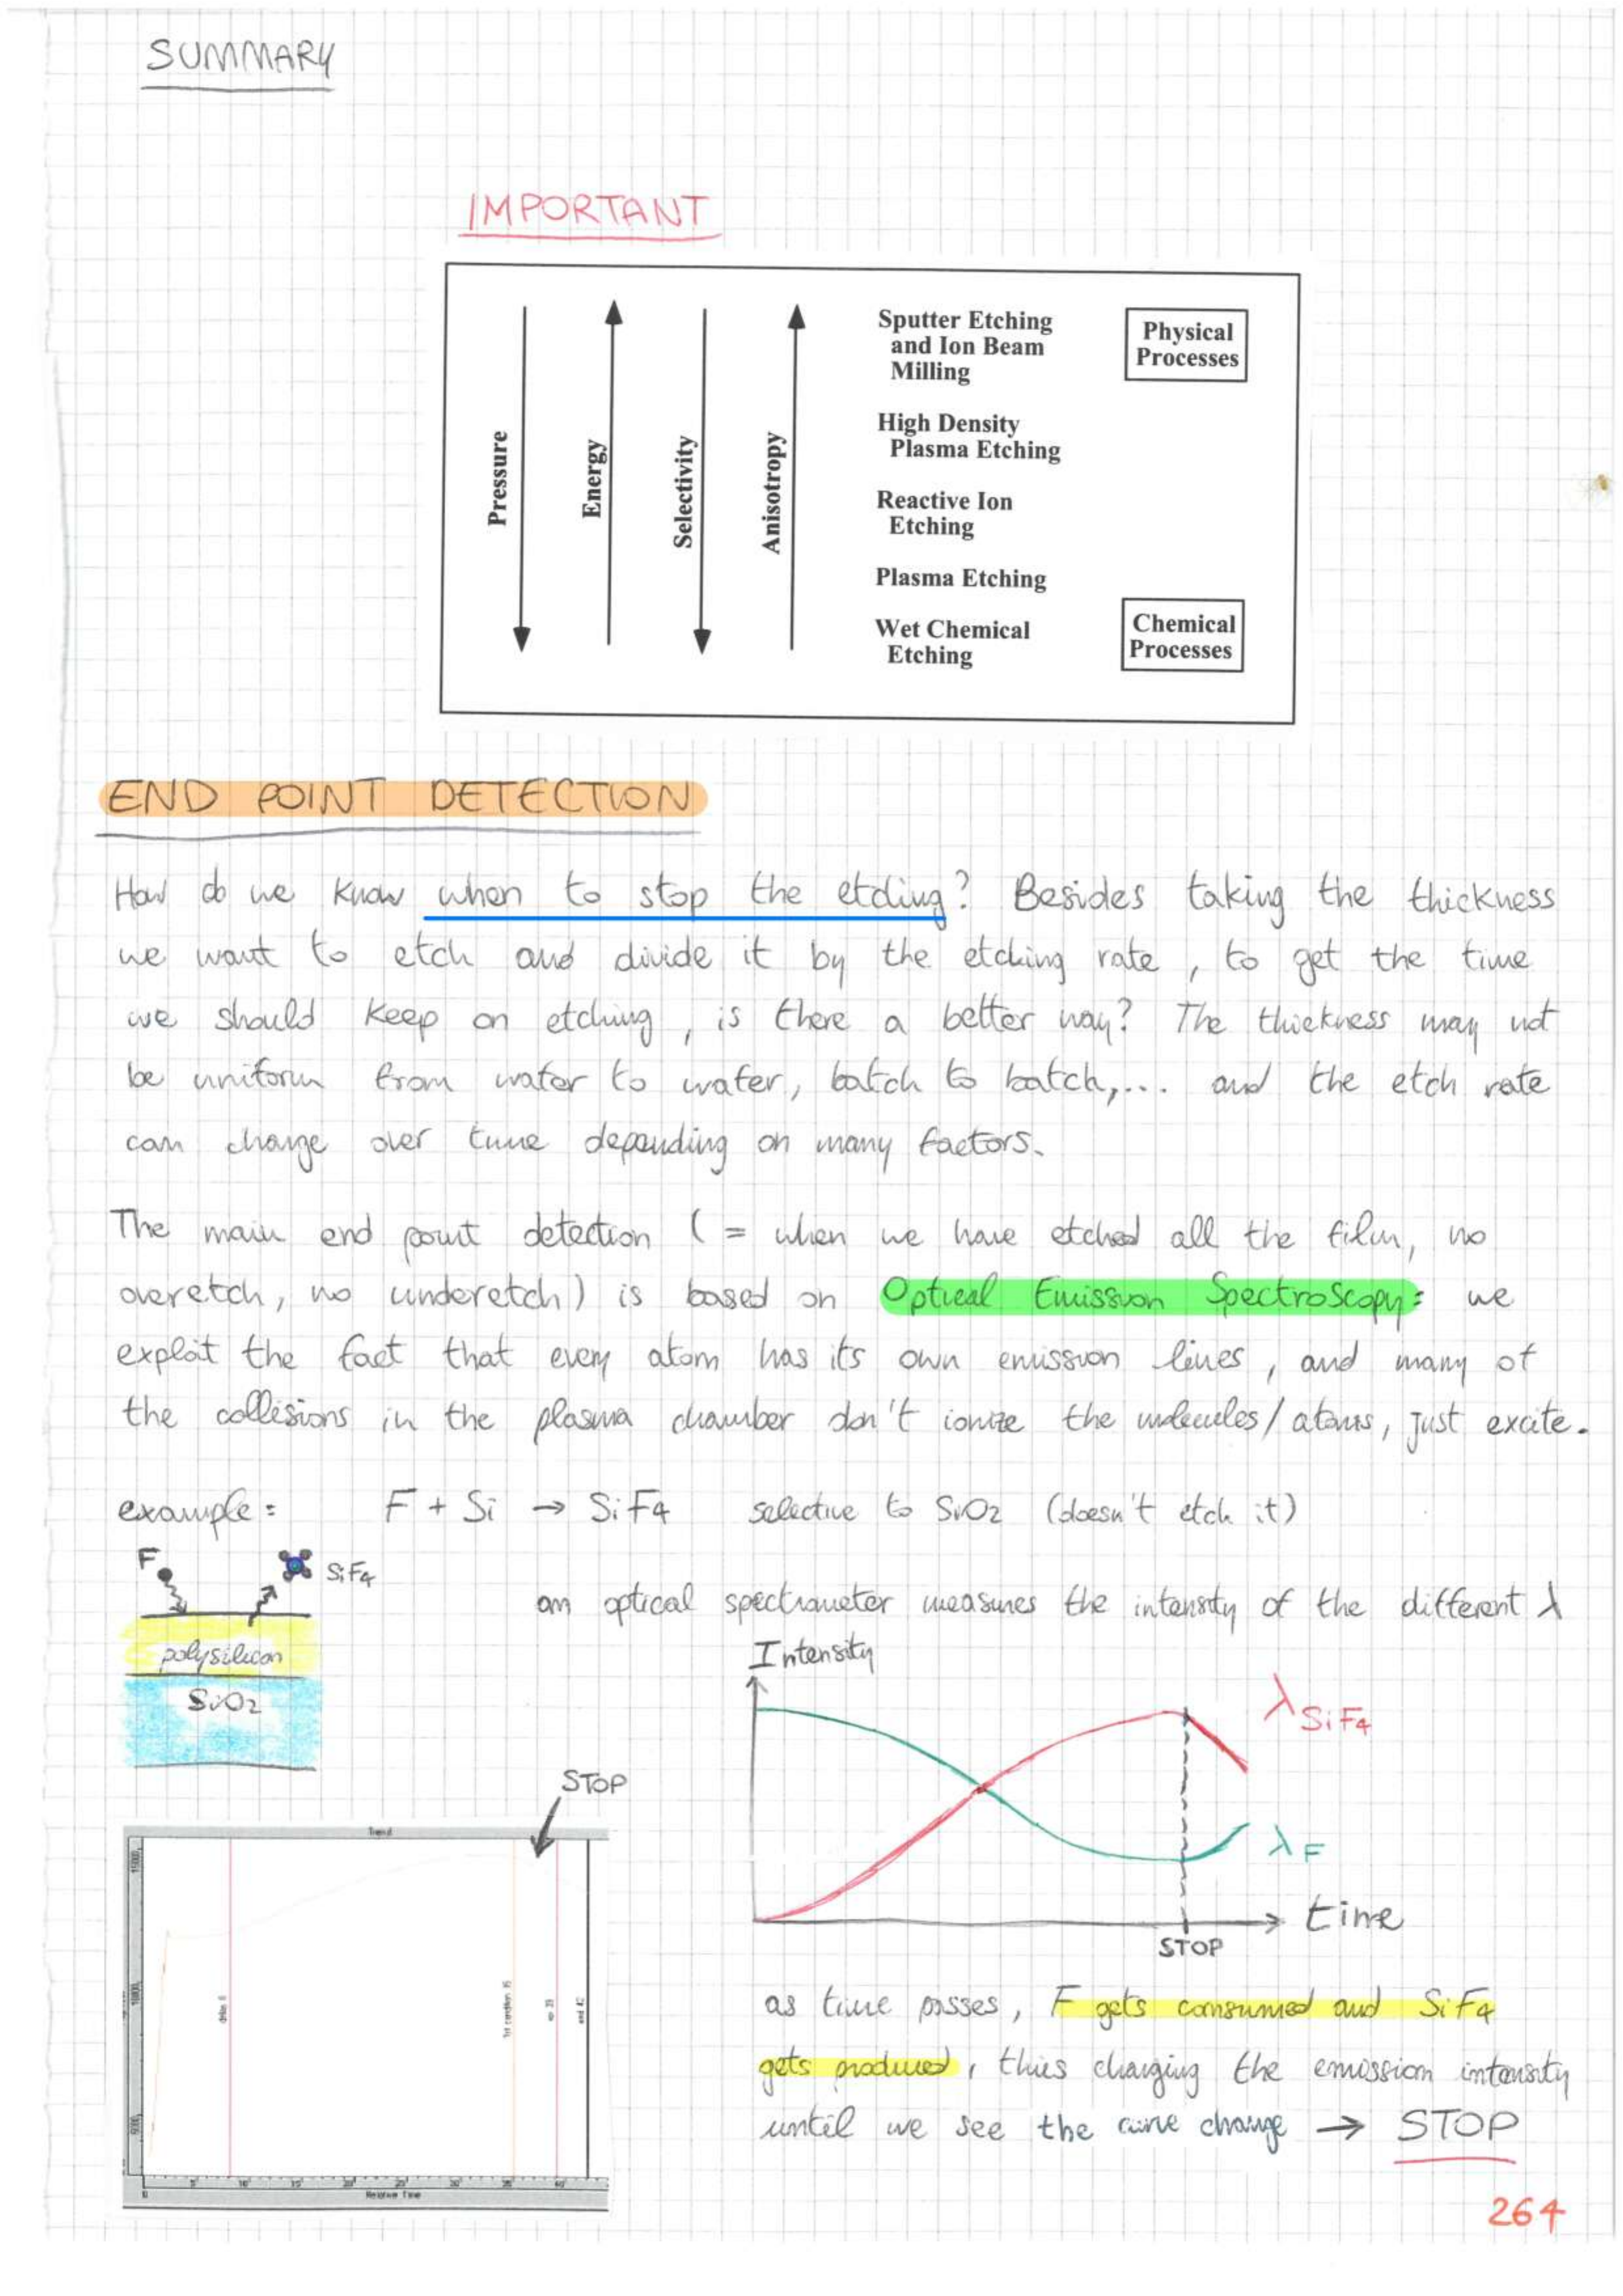 SUMMARY
IMPORTANT
Pressure
Energy
Selectivity
Anisotropy
Sputter Etching
and Ion Beam
Milling
Physical
Processes
High Density
Plasma Etching
Reactive Ion
Etching
Plasma Etching
Wet Chemical
Etching
Chemical
Processes
END POINT DETECTION
How do we know when to stop the etching? Besides taking the thickness
we want to etch and divide it by the etching rate, to get the time
we should keep on etching, is there a better way? The thickness may not
be uniform from wafer to wafer, batch to batch,... and the etch rate
can change over time depending on many factors.
The main end point detection (= when we have etched all the film, no
overetch, no underetch) is based on Optical Emission Spectroscopy: we
exploit the fact that every atom has its own emission lines, and many of
the collisions in the plasma chamber don't ionize the molecules/atoms, just excite.
example: F + Si → SiF4 selective to SiO2 (doesn't etch it)
F
SiF4
polysilicon
SiO2
an optical spectrometer measures the intensity of the different λ
Intensity
λ SiF4
λ F
time
STOP
STOP
Trend
15000
10000
5000
delay 8
1st condition 35
ep 39
end 42
0 5 10 15 20 25 30 35 40
Relative Time
as time passes, F gets consumed and SiF4
gets produced, thus changing the emission intensity
until we see the curve change → STOP
264